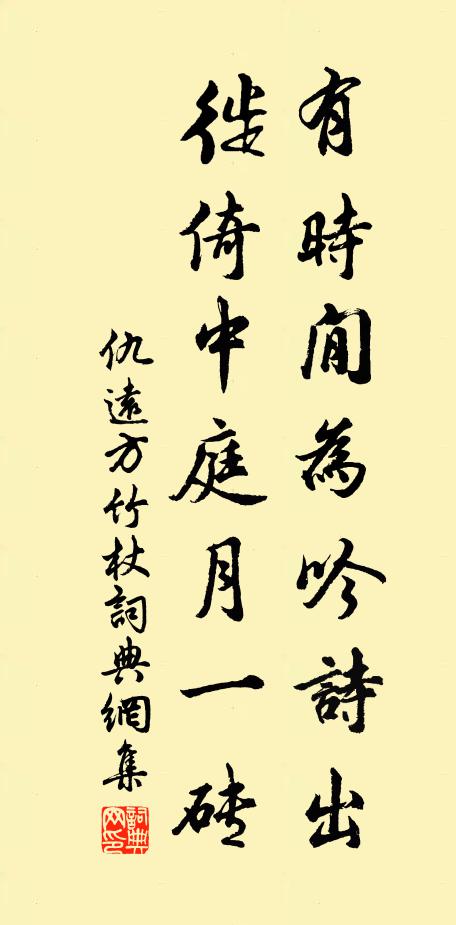 有時閒為吟詩出
徙倚中庭月一磚
仇遠方竹杖詞典網集
詞典網印